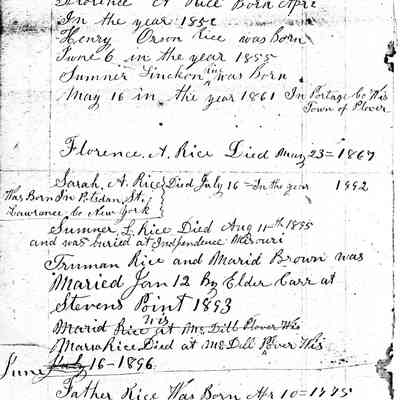 Florence A Rice Born Apri
In the year 185
Henry Orson Rice was Born
June 6 in the year 1855
Sumner Linchon Rice was Born
May 16 in the year 1861 In Portage Co Wis
Town of Plover
Florence, A. Rice Died May 23=1867
Sarah, A. Rice Died July 16=In the year 1892
Was Born In Potsdan, St.
Lawrance Co New York
Sumner L. Rice Died Aug 11th 1895
and was buried at Independence Missouri
Truman Rice and Marid Brown was
Maried Jan 12 By Elder Carr at
Stevens Point 1893
Marid Rice at Mc Dill Plover Wis
Maria Rice Died at Mc Dill Plover Wis
June July 16-1896
Father Rice Was Born Apr 10=1775